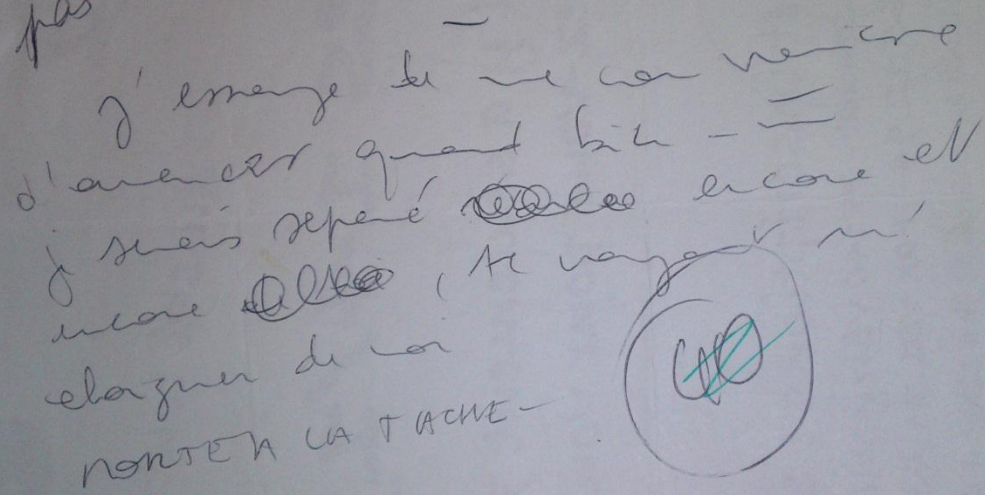 pas
J'essaye de me con vaincre
d'avancer quand bien -
je serais séparé encore et
encore , te voyant m'
eloigner de
MORTE A LA TACHE -